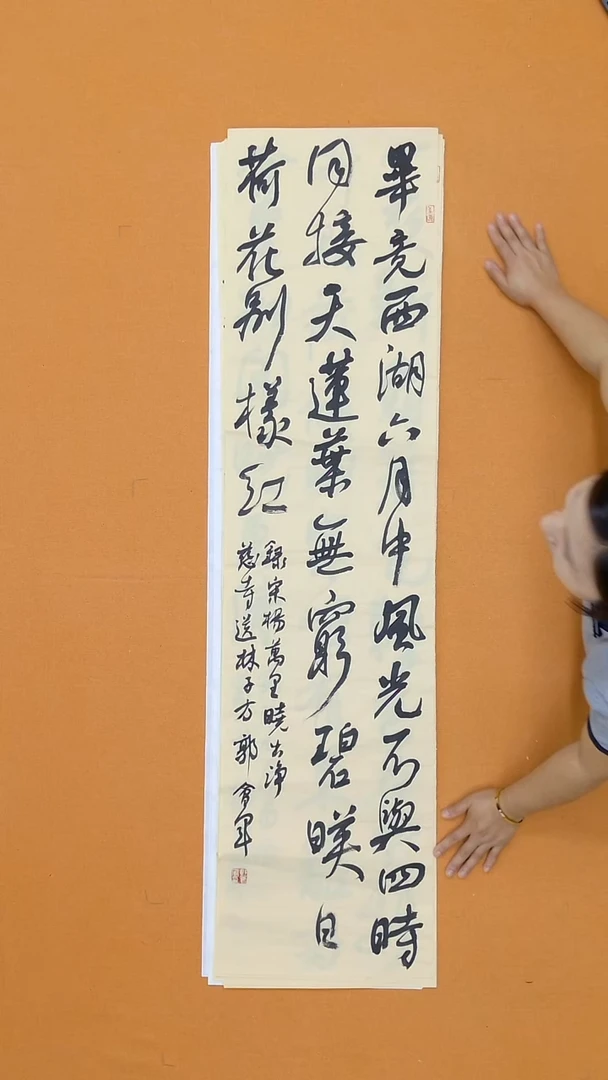 畢竟西湖六月中風光不與四時
同接天蓮葉無窮碧映日
荷花別樣紅
錄宋楊萬里曉出淨
慈寺送林子方郭